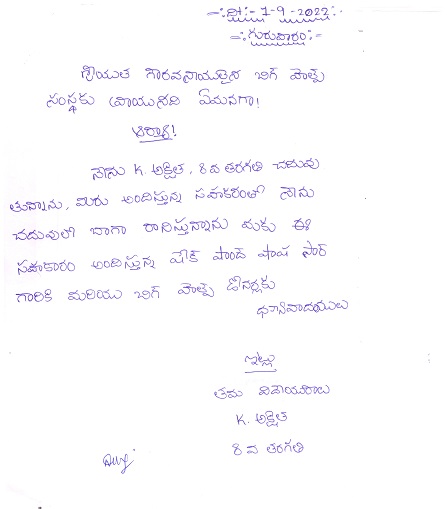 -: ది:- 1-9-2022:-
-: గురువారం:-
శ్రీయుత గౌరవనీయులైన బిగ్ హెల్ప్
సంస్థకు వ్రాయునది ఏమనగా!
ఆర్యా!
నేను K. అక్షిత, 8వ తరగతి చదువు
తున్నాను, మీరు అందిస్తున్న సహకారంతో నేను
చదువులో బాగా రాణిస్తున్నాను మాకు ఈ
సహకారం అందిస్తున్న షేక్ చాంద్ పాష సార్
గారికి మరియు బిగ్ హెల్ప్ డోనర్లకు
ధన్యవాదములు
ఇట్లు
తమ విధేయురాలు
K. అక్షిత
8 వ తరగతి